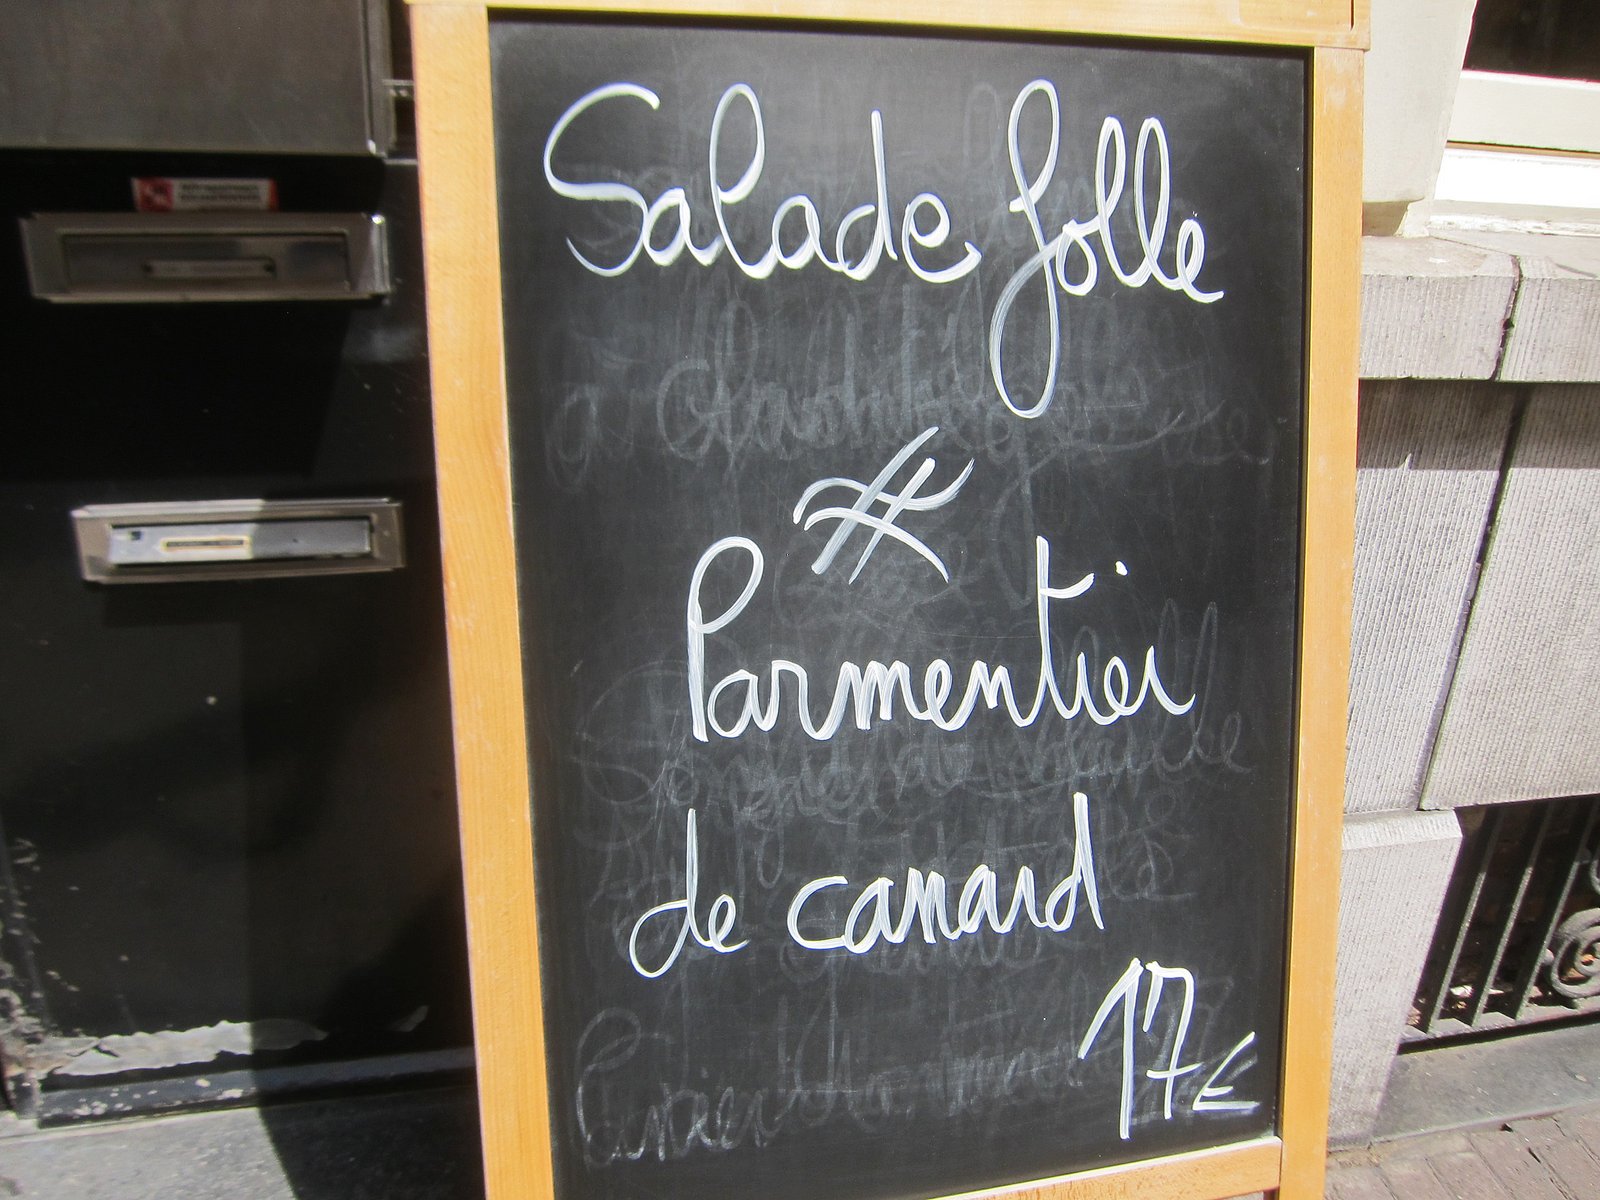 Salade folle
Parmentier
de canard
17€